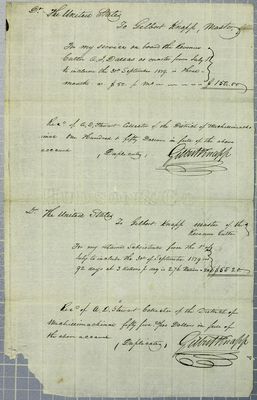 Dr. The United States
To Gilbert Knapp, Master
For my services on board the Revenue
Cutter A. J. Dallas as master from July 1
to inclusive the 30th September 1819, is three
months @ $50 p mo — — — — $150.00
Recd. of A. D. Stewart Collector of the District of Michilimackinac
One Hundred & fifty Dollars in full of the above
account. (Duplicate)
Gilbert Knapp
Dr. The United States
To Gilbert Knapp master of the
Revenue Cutter
For my rations Subsistence from the 1st of
July to inclusive the 30th of September 1819 is
92 days at 3 rations p day is 276 Rations $55.20
Recd. of A. D. Stewart Collector of the District of
Michilimackinac fifty five Dollars in full of
the above account. (Duplicate)
Gilbert Knapp